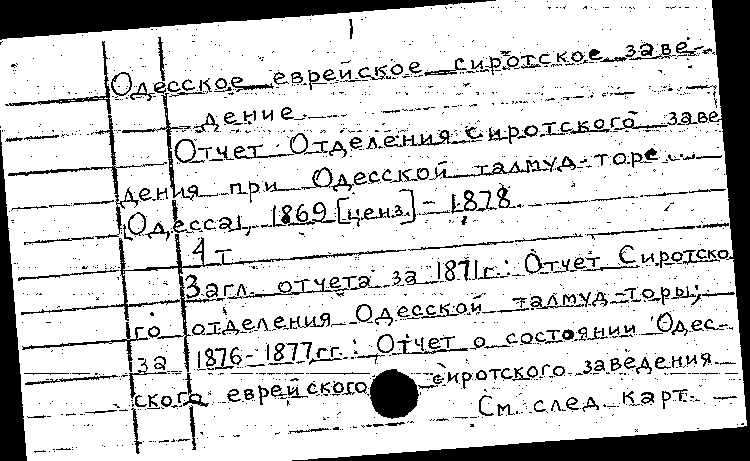 Одесское еврейское сиротское заве-
дение.
Отчет Отделения Сиротского заве
дения при Одесской талмуд-торе...
[Одесса], 1869 [ценз.] - 1878.
4 т.
Загл. отчета за 1871г.: Отчет Сиротско
го отделения Одесской талмуд-торы;
за 1876-1877гг.: Отчет о состоянии Одес-
ского еврейского сиротского заведения.
См. след. карт.